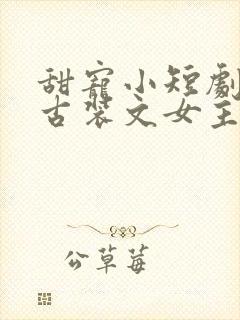 甜寵小短劇
古裝文女主
公草莓